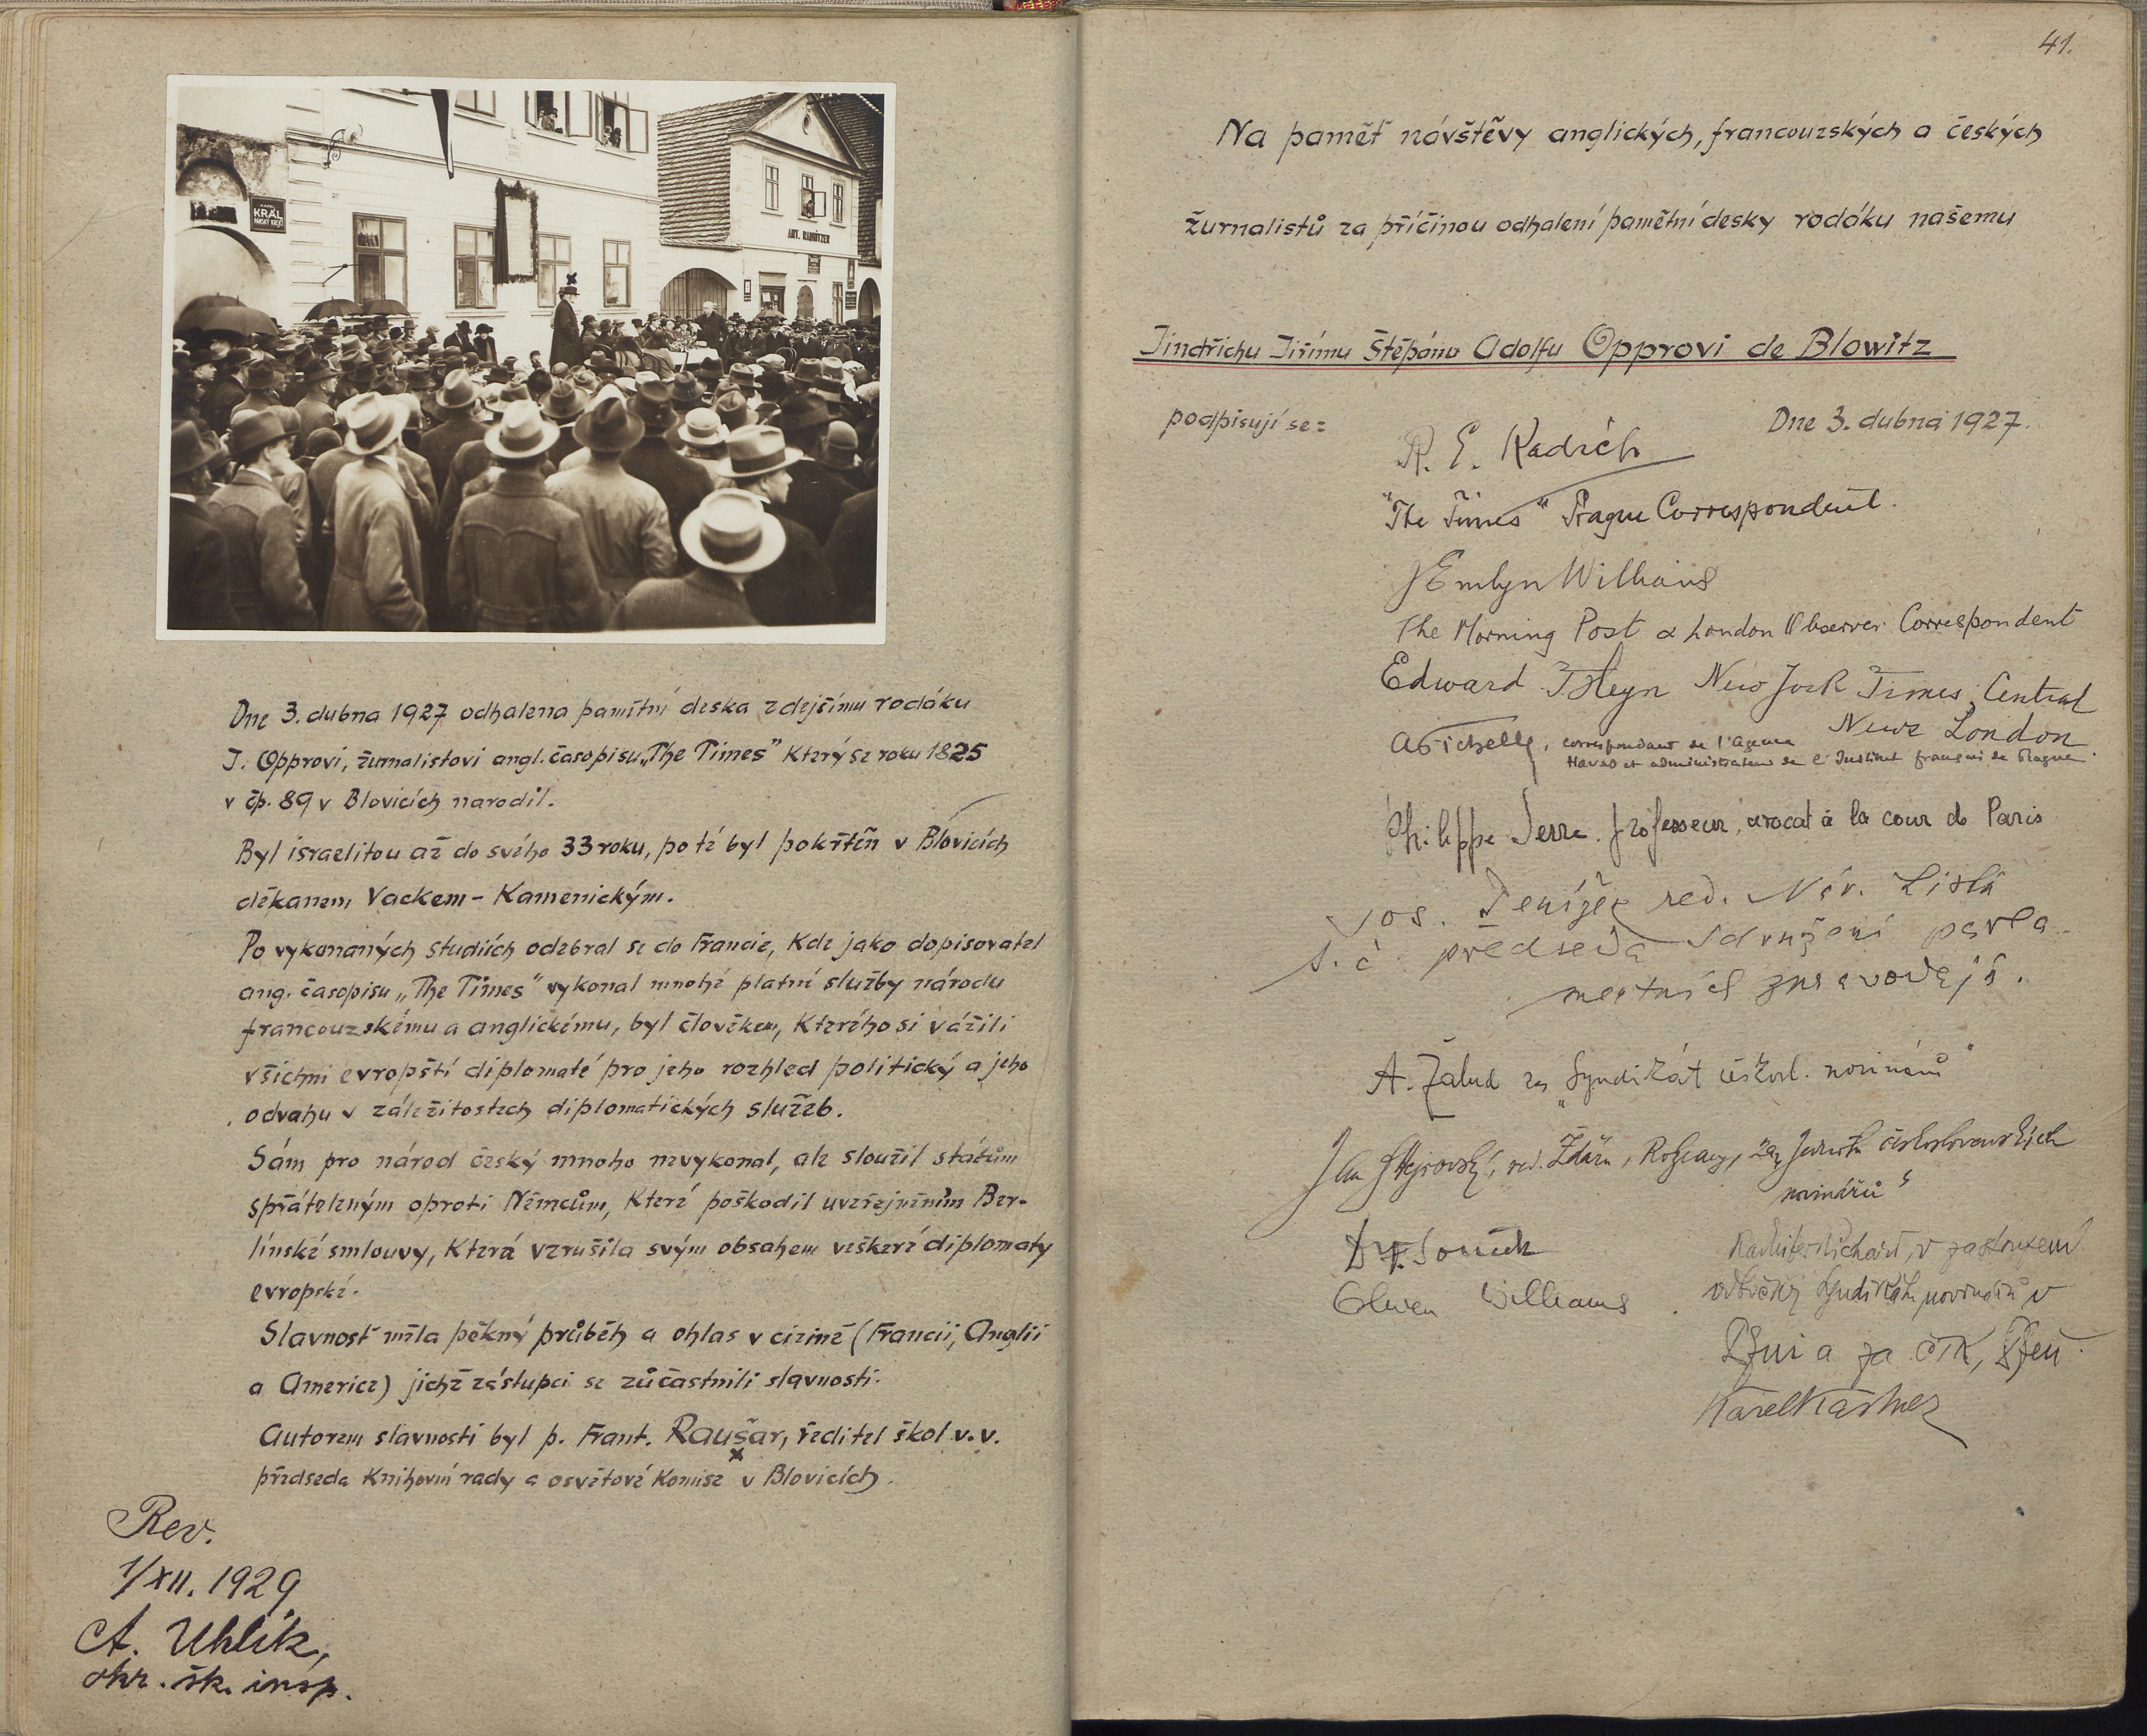 KRÁL
ANT. RADNITZER
Dne 3. dubna 1927 odhalena pamětní deska zdejšímu rodáku
J. Opprovi, žurnalistovi angl. časopisu „The Times" který se roku 1825
v čp. 89 v Blovicích narodil.
Byl israelitou až do svého 33 roku, po té byl pokřtěn v Blovicích
děkanem Vackem-Kamenickým.
Po vykonaných studiích odebral se do Francie, kde jako dopisovatel
ang. časopisu „The Times" vykonal mnohé platné služby národu
francouzskému a anglickému, byl člověkem, kterého si vážili
všichni evropští diplomaté pro jeho rozhled politický a jeho
odvahu v záležitostech diplomatických služeb.
Sám pro národ český mnoho nevykonal, ale sloužil státům
spřáteleným oproti Němcům, které poškodil uveřejněním Ber-
línské smlouvy, která vzrušila svým obsahem veškeré diplomaty
evropské.
Slavnost měla pěkný průběh a ohlas v cizině (Francii, Anglii
a Americe) jichž zástupci se zůčastnili slavnosti.
Autorem slavnosti byl p. Frant. Raušar, ředitel škol v. v.
x
předseda knihovní rady a osvětové komise v Blovicích.
Rev.
1/XII. 1929
A. Uhlík,
okr. šk. insp.
41.
Na paměť návštěvy anglických, francouzských a českých
žurnalistů za příčinou odhalení pamětní desky rodáku našemu
Jindřichu Jiřímu Štěpánu Adolfu Opprovi de Blowitz
podpisují se:
Dne 3. dubna 1927.
R. E. Kadich
"The Times" Prague Correspondent.
J Emlyn Williams
The Morning Post & London Observer Correspondent
Edward Heyn New York Times, Central
News London
correspondant de l'Agence
Havas et administrateur de l'Institut français de Prague.
Philippe Serre. professeur, avocat à la cour de Paris
Jos. Penížek red. Nár. Listů
t. č. předseda sdružení parla-
mentních zpravodajů.
A. Žalud za „Syndikát českosl. novinářů"
Jan Hejrovský, red. Žďáru, Rokycany, za Jednotu československých
novinářů"
Olwen Williams
v zastoupení
odbočky Syndikátu novinářů v
Plzni a za ČTK, Plzeň.
Karel Kastner